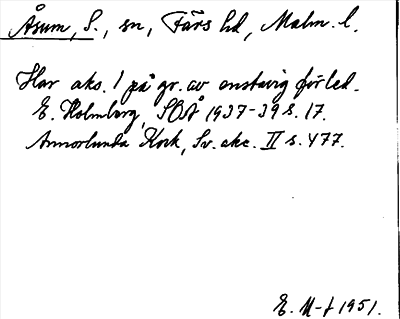 Åsum, S., sn, Färs hd, Malm. l.
Har aks. 1 på gr. av enstavig förled.
E. Holmberg, SOÅ 1937-39 s. 17.
Annorlunda Kock, Sv. akc. II s. 477.
E. M-f 1951.